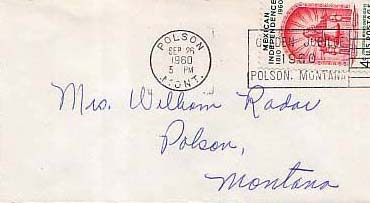 POLSON
SEP 26
1960
5 PM
MONT.
MEXICAN
INDEPENDENCE
1810 1960
4¢ U.S. POSTAGE
1960
POLSON, MONTANA
Mrs. William Radar
Polson,
Montana